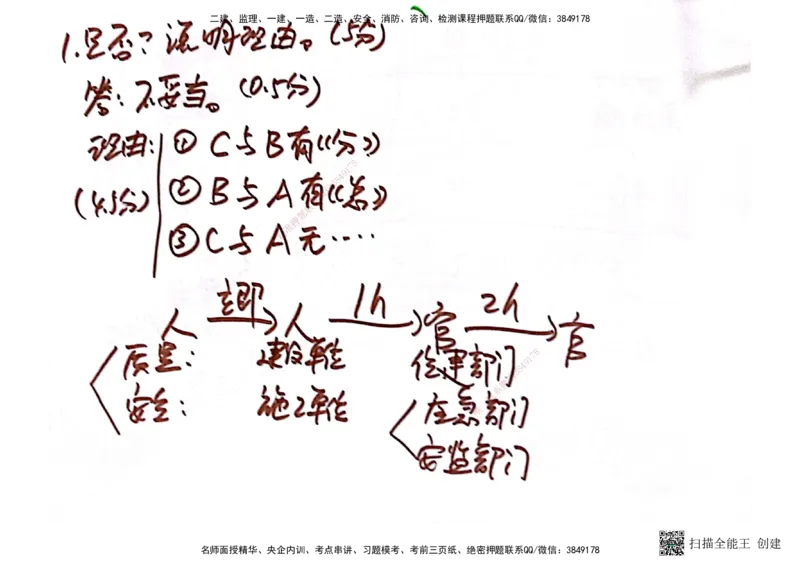 二建、监理、一建、一造、二造、安全、消防、咨询、检测课程押题联系QQ/微信：3849178
1.是否？说明理由。(5分)
答：不妥当。(0.5分)
理由： ① C与B有《分》
(4.5分) ② B与A有《总》
③ C与A无····
人 立即 人 1h 官 2h 官
质量： 建设单位 住建部门
安全： 施工单位 应急部门
安监部门
名师面授精华、央企内训、考点串讲、习题模考、考前三页纸、绝密押题联系QQ/微信：3849178
扫描全能王 创建